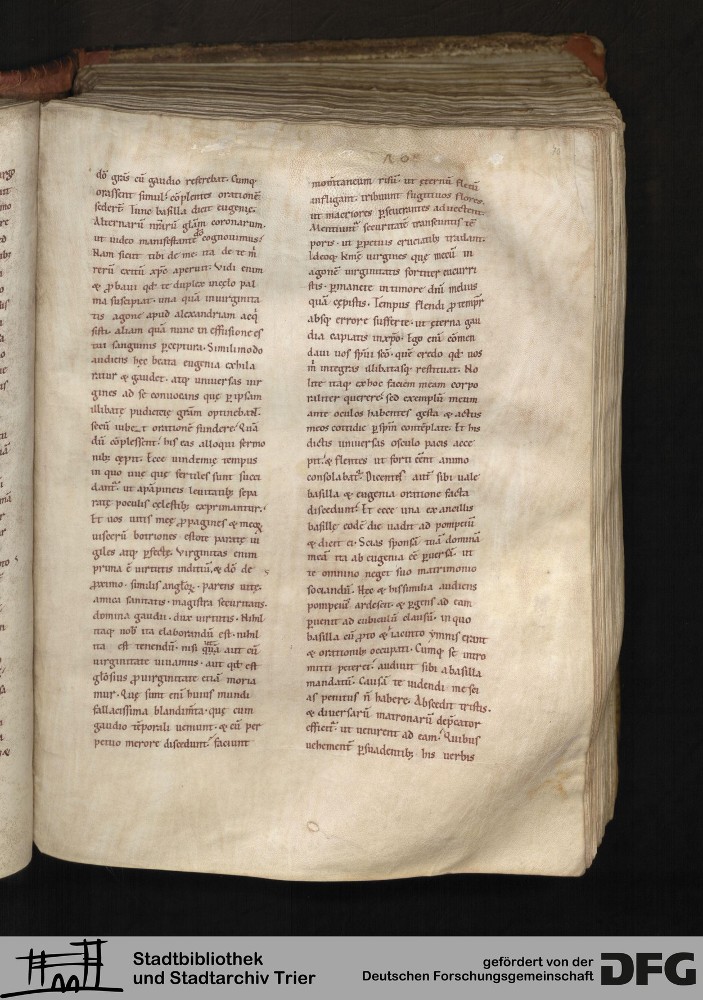 dō grās cū gaudio referebat. Cumq;
orassent simul. cōplentes orationē
sederē. Tunc basilla dicit eugenię.
Alternarū nr̄arū glām coronarum.
ut video manifestante dō cognovimus.
Nam sicut tibi de me. ita de te m̄
rerū exitū xp̄c aperuit. Vidi enim
& ꝓbavi qd te duplex incęlo pal
ma suscipiat. una quā invirginita
tis agone apud alexandriam acq̄
sisti. aliam quā nunc in effusione es
tui sanguinis ꝑceptura. Similimodo
audiens hęc beata eugenia exhila
ratur & gaudet. atq; universas vir
gines ad se convocans quę ꝑ ipsam
illibatę pudicitię grām optinebant.
secū iubet orationē fundere. Quā
dū cōplessent. his eas alloqui sermo
nib; cępit. Ecce vindemię tempus
in quo uvę quę fertiles sunt succi
dant. ut apāpineis levitatib; sepa
ratę poculis cęlestib; exprimantur.
Et vos vitis meę ꝓpagines & meoꝝ
viscerū botriones estote paratę vi
giles atq; ꝑfectę. Virginitas enim
prima ē virtutis inditiū. & dō de
ꝓximo. similis angloꝝ. parens vitę.
amica sanitatis. magistra securitatis.
domina gaudii. dux virtutis. Nihil
itaq; nob ita elaborandū est. nihil
ita est tenendū. nisi quā aut cū
virginitate vivamus. aut qd est
gloīosius ꝓ virginitate etiā moria
mur. Quę sunt enī huius mundi
fallacissima blandimta. quę cum
gaudio tēporali veniunt. & cū per
petuo merore discedunt. faciunt
momtaneum risū. ut ęternū fletū
infligant. tribuunt fugitivos flores.
ut maeriores ꝑseverantes advectent.
Mentiunt securitatē transeuntis tē
poris. ut ꝑpetuis cruciatib; tradant.
Ideoq; kmę virgines quę mecū in
agonē virginitatis fortiter cucurri
stis. ꝑmanete in timore dn̄i melius
quā cępistis. Tempus flendi ꝓ tempr
absq; errore sufferte. ut ęterna gau
dia capiatis inxp̄o. Ego enī cōmen
davi vos sp̄ui scō. quē credo qd vos
m̄ integras illibatasq; restituat. No
lite itaq; exhoc faciem meam corpo
raliter querere. sed exemplū meum
ante oculos habentes gesta & actus
meos cotidie ꝑ sp̄m contēplate. Et his
dictis universas osculo pacis acce
pit. & flentes ut forti eēnt animo
consolabat. Dicentes aut sibi vale
basilla & eugenia oratione facta
discedunt. Et ecce una ex ancillis
basillę eodē die vadit ad pompeiū
& dicit ei. Scias sponsā tuā dominā
meā ita ab eugenia eē ꝑversā. ut
te omnino neget suo matrimonio
sociandū. Hęc & his similia audiens
pompeius ardescit. & ꝑgens ad eam
ꝑvenit ad cubiculū clausū. in quo
basilla cū ꝓto & iacinto ymnis erant
& orationib; occupati. Cumq; se intro
mitti peteret. audivit sibi a basilla
mandatū. Causā te videndi me sci
as penitus n̄ habere. Abscedit tristis.
& diversarū matronarū dep̄cator
efficit. ut venirent ad eam. Quibus
vehement ꝑsuadentib; his verbis
Stadtbibliothek
und Stadtarchiv Trier
gefördert von der
Deutschen Forschungsgemeinschaft
DFG